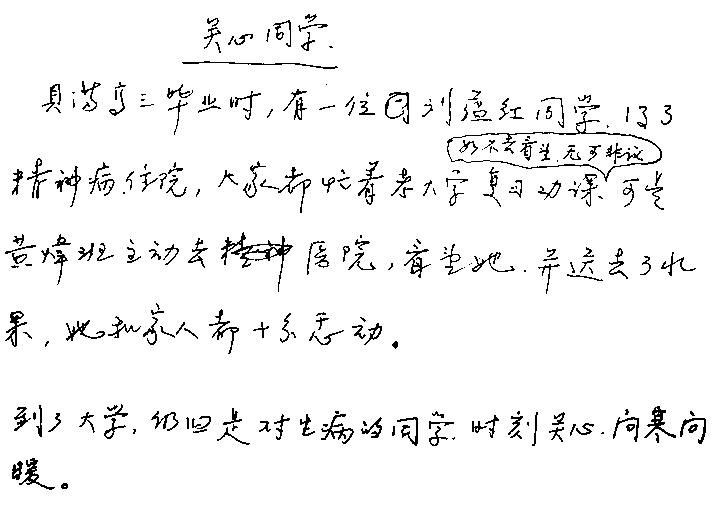 关心同学.
高三毕业时,有一位刘蕴红同学.得了
如不去看望,无可非议
精神病住院,大家都忙着考大学复习功课、可是
黄炜班主动去精神医院,看望她.并送去了水
果,她和家人都十分感动。
到了大学,仍旧是对生病的同学.时刻关心.问寒问
暖。